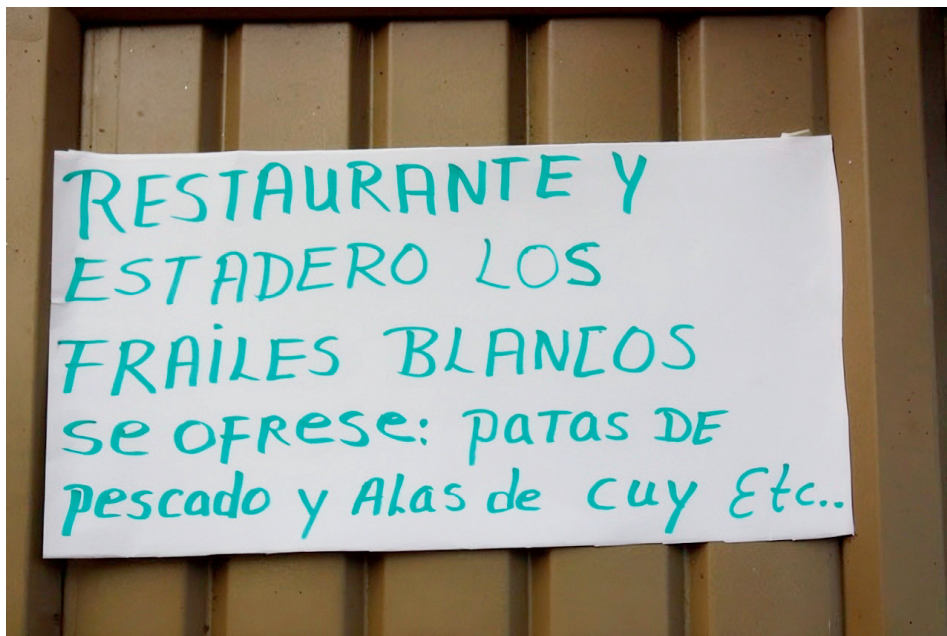 RESTAURANTE Y
ESTADERO LOS
FRAiLES BLANCOS
Se OFRese: PATAS DE
pescado y Alas de cuy Etc..